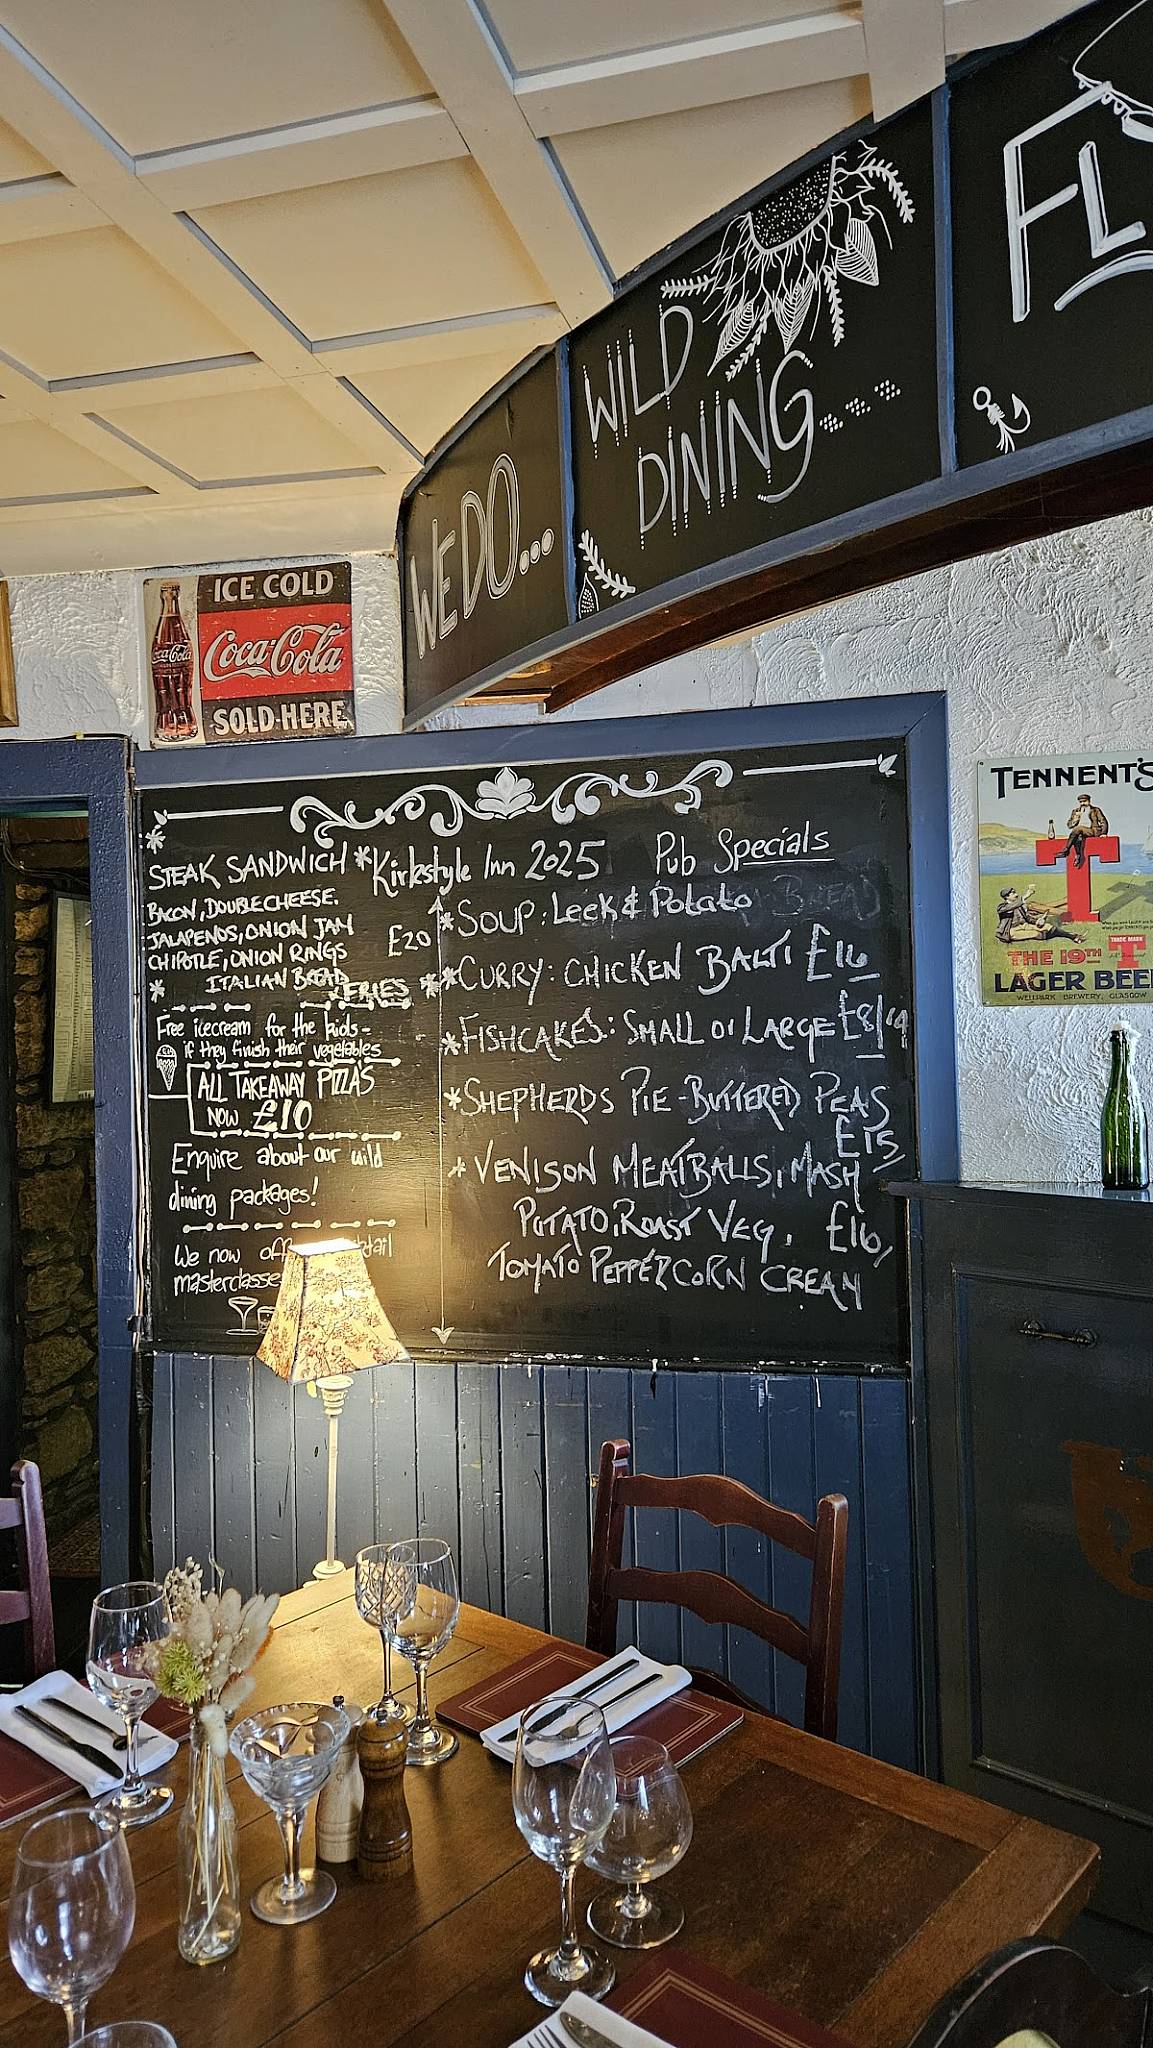 WE DO...
WILD
DINING...
FL
ICE COLD
Coca-Cola
Coca-Cola
SOLD HERE
TENNENT'S
T
TRADE MARK
T
THE 19TH
LAGER BEE
WELLPARK BREWERY, GLASGOW
Kirkstyle Inn 2025 Pub Specials
STEAK SANDWICH
BACON, DOUBLE CHEESE.
JALAPENOS, ONION JAM
CHIPOTLE, ONION RINGS
ITALIAN BREAD
£20
FRIES
Free icecream for the kids -
if they finish their vegetables
ALL TAKEAWAY PIZZA'S
NOW £10
Enquire about our wild
dining packages!
We now
masterclasse
SOUP: Leek & Potato
CURRY: CHICKEN BALTI £16
FISHCAKES: SMALL or LARGE £8/14
SHEPHERDS PIE - BUTTERED PEAS
£15
VENISON MEATBALLS, MASH
POTATO, ROAST VEG. £16
TOMATO PEPPERCORN CREAM